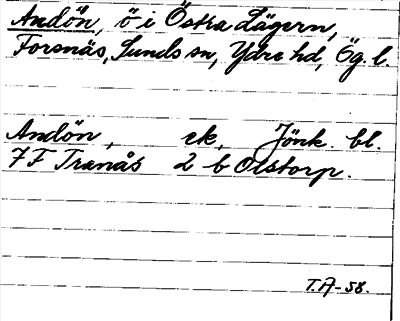 Andön, ö i Östra Lägern,
Forsnäs, Sunds sn, Ydre hd, Ög. l.
Andön, ek, Jönk. bl.
7F Tranås 2 b Olstorp.
T.A-58.